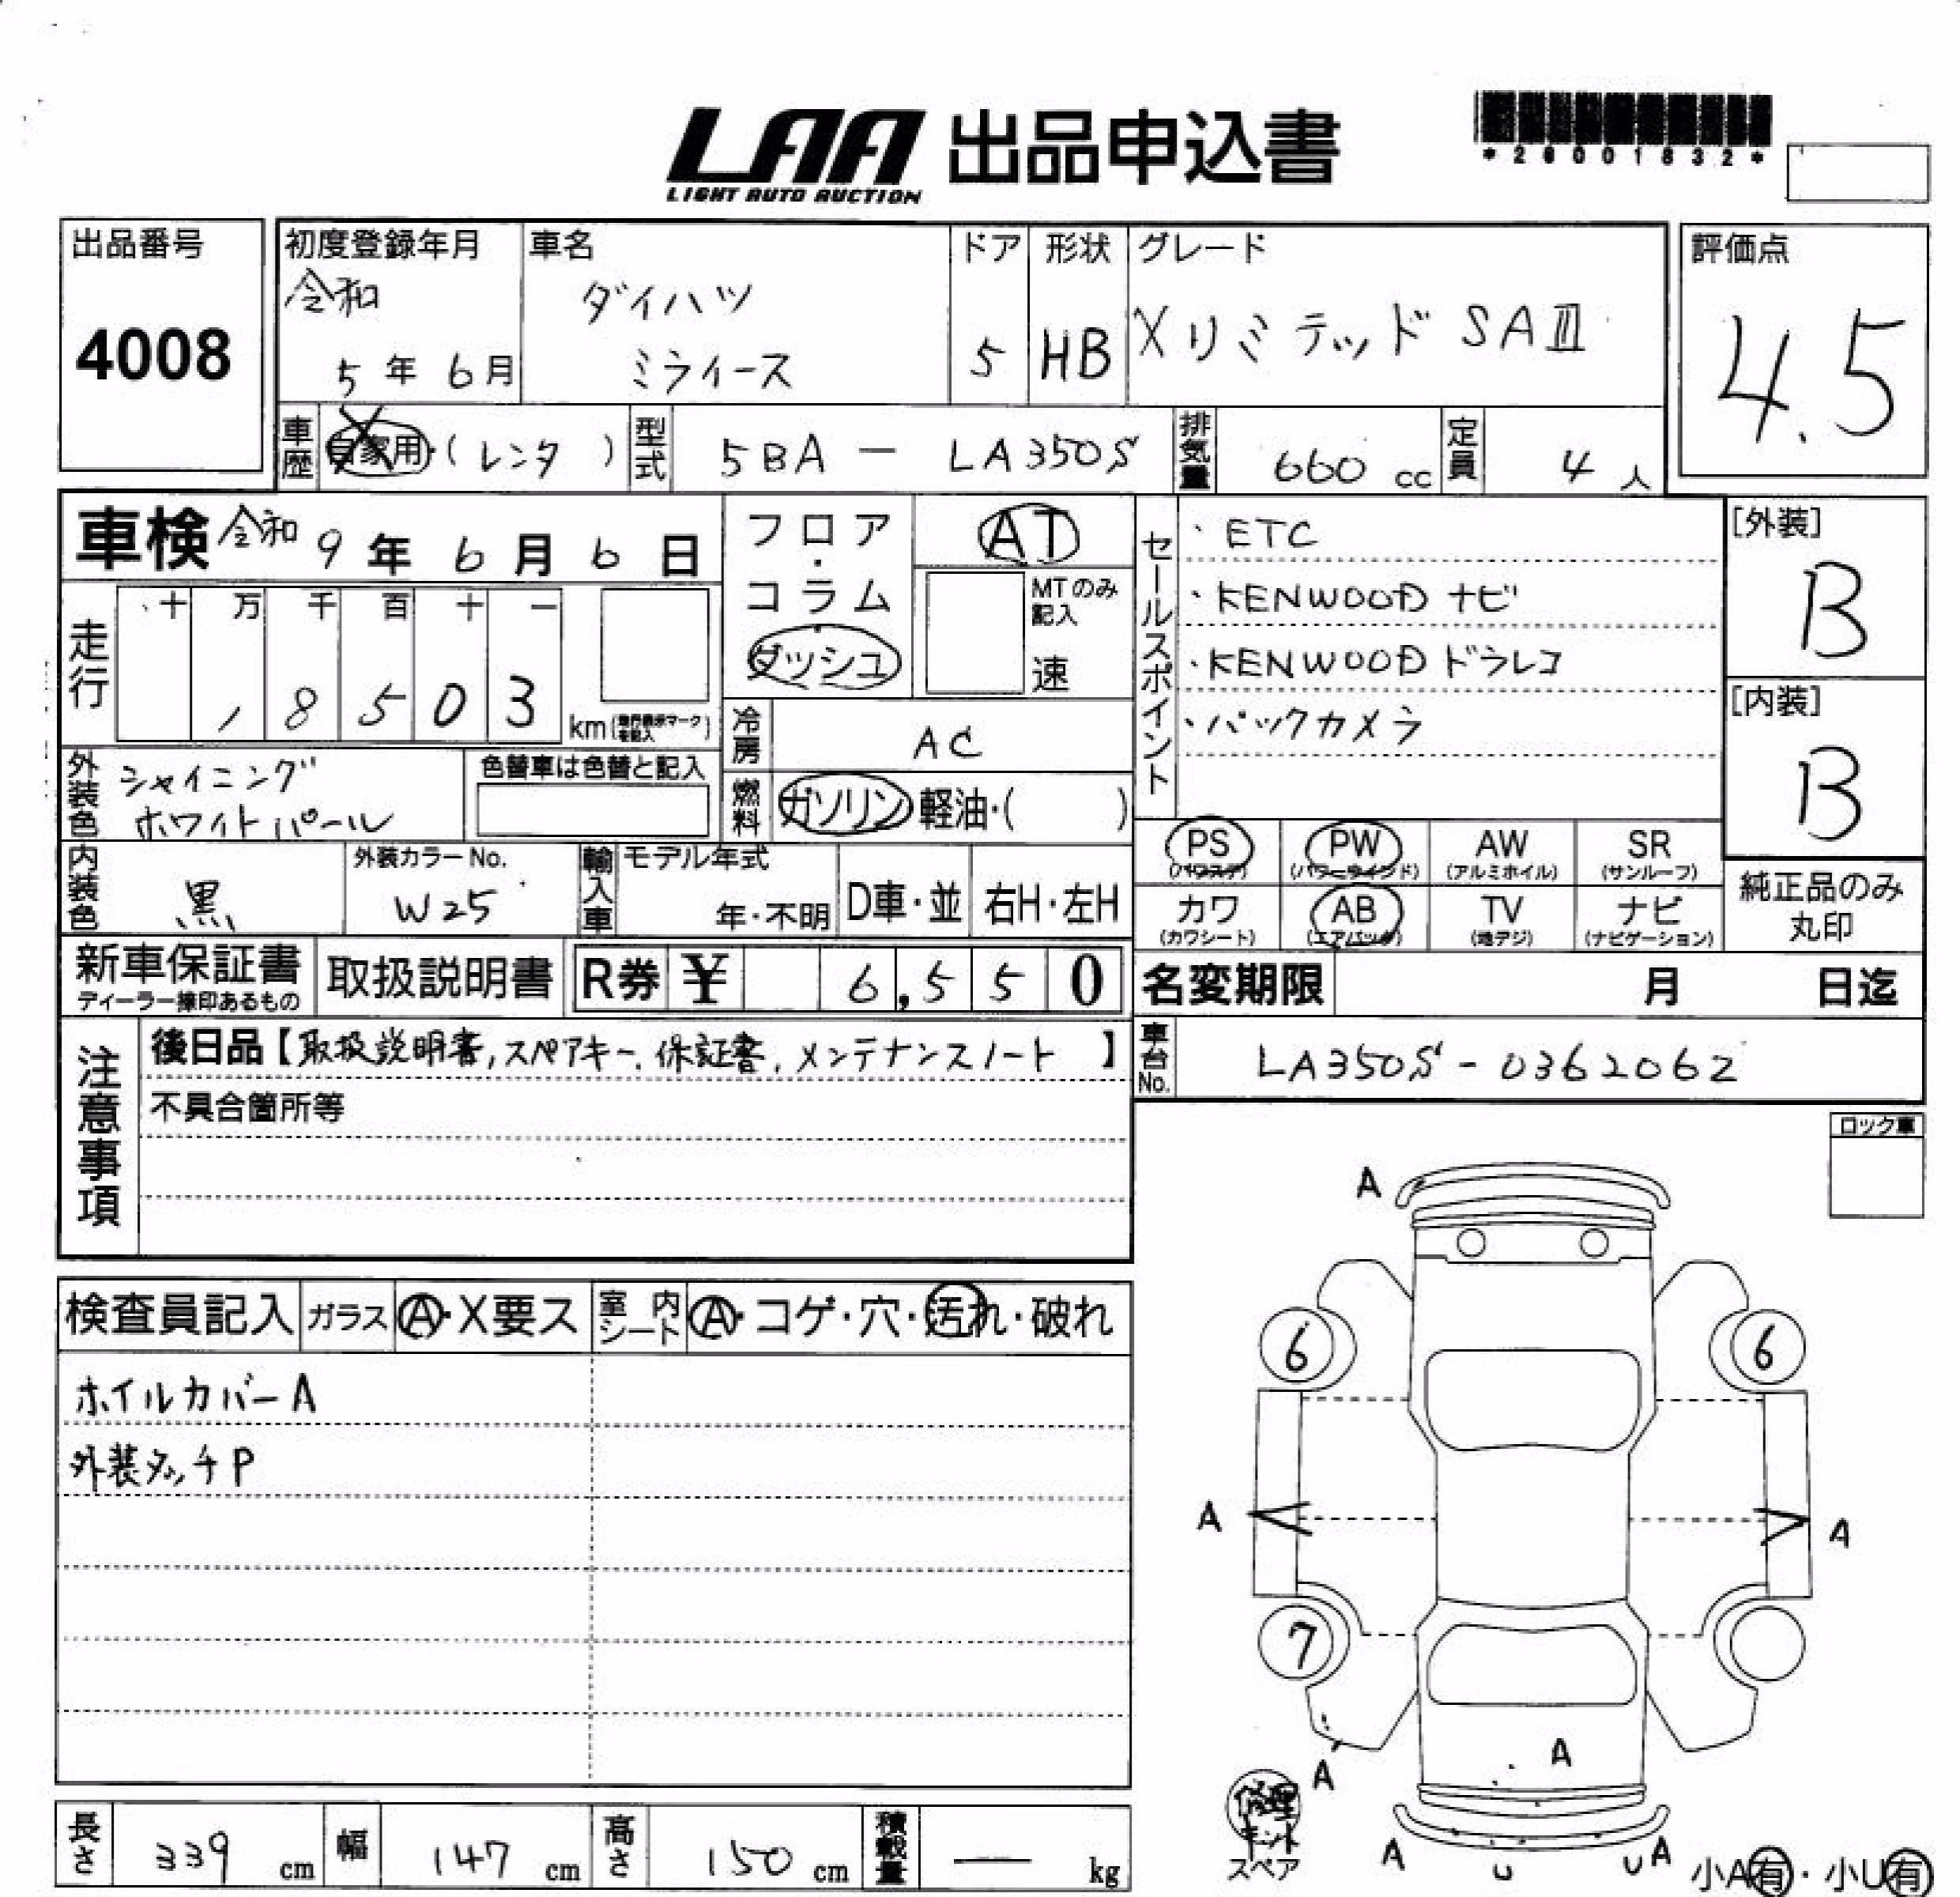 LAA 出品申込書
LIGHT AUTO AUCTION
*26001832*
出品番号
4008
初度登録年月
令和
5年6月
車名
ダイハツ
ミライース
ドア
5
形状
HB
グレード
XリミテッドSAⅢ
評価点
4.5
車歴
自家用・(レンタ)
型式
5BA - LA350S
排気量
660 cc
定員
4人
車検 令和9年6月6日
フロア・コラム
ダッシュ
AT
MTのみ記入
速
セールスポイント
・ETC
・KENWOOD ナビ
・KENWOOD ドラレコ
・バックカメラ
[外装]
B
[内装]
B
走行
十万千百十一
8503
km
冷房
AC
外装色
シャイニング
ホワイトパール
色替車は色替と記入
燃料
ガソリン・軽油・( )
PS (パワステ)
PW (パワーウインド)
AW (アルミホイル)
SR (サンルーフ)
カワ (カワシート)
AB (エアバッグ)
TV (地デジ)
ナビ (ナビゲーション)
純正品のみ
丸印
内装色
黒
外装カラーNo.
W25
輸入車
モデル年式
年・不明
D車・並
右H・左H
新車保証書
ディーラー捺印あるもの
取扱説明書
R券 ¥ 6,550
名変期限 月 日迄
注意事項
後日品【取扱説明書,スペアキー,保証書,メンテナンスノート】
不具合箇所等
車台No.
LA350S-0362062
ロック車
検査員記入
ガラス
A・X要ス
室内シート
A・コゲ・穴・汚れ・破れ
ホイルカバーA
外装タッチP
A
6
6
A
A
7
A
A
修理
キット
スペア
A
U
UA
小A有・小U有
長さ
339 cm
幅
147 cm
高さ
150 cm
積載量
— kg